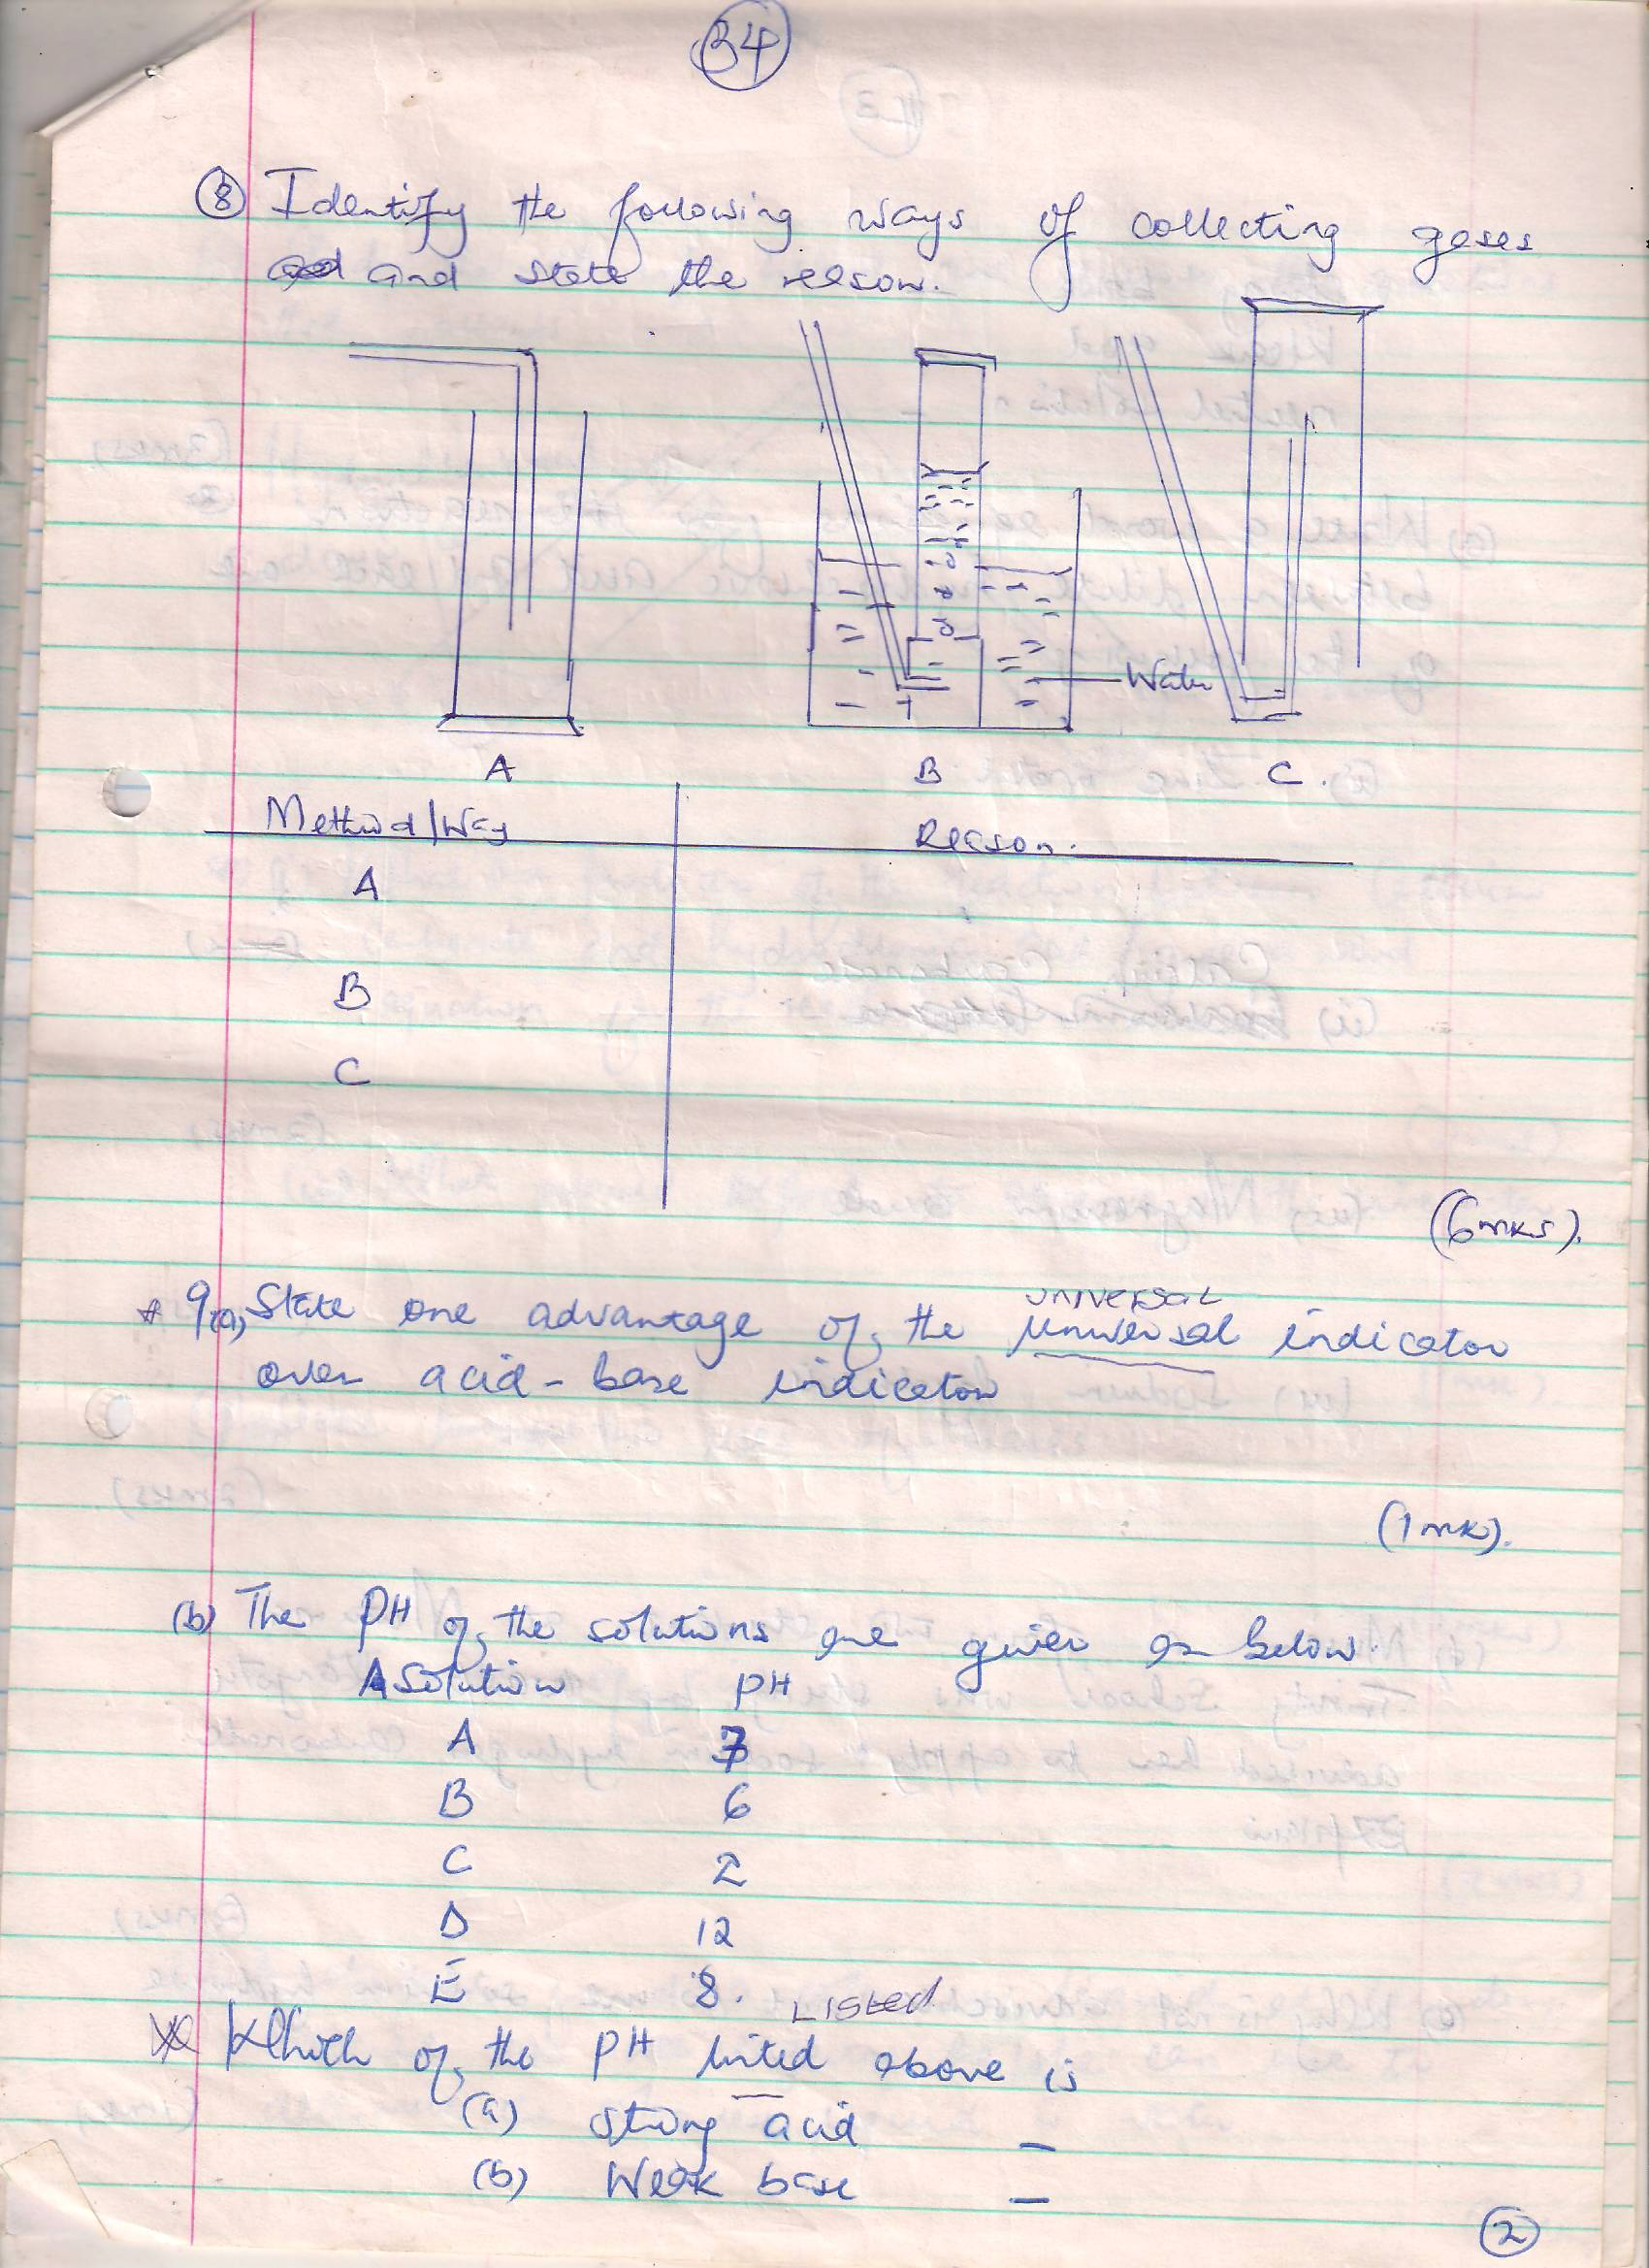 34
8 Identify the following ways of collecting gases
and state the reason.
Water
A B C.
Method/Way Reason.
A
B
C
(6mks).
* 9(a), State one advantage of the universal indicator
UNIVERSAL
over acid-base indicator
(1mk).
(b) The PH of the solutions are given as below.
Solution PH
A 7
B 6
C 2
D 12
E 8.
LISTED
Which of the PH listed above is
(a) strong acid _
(b) Weak base _
2